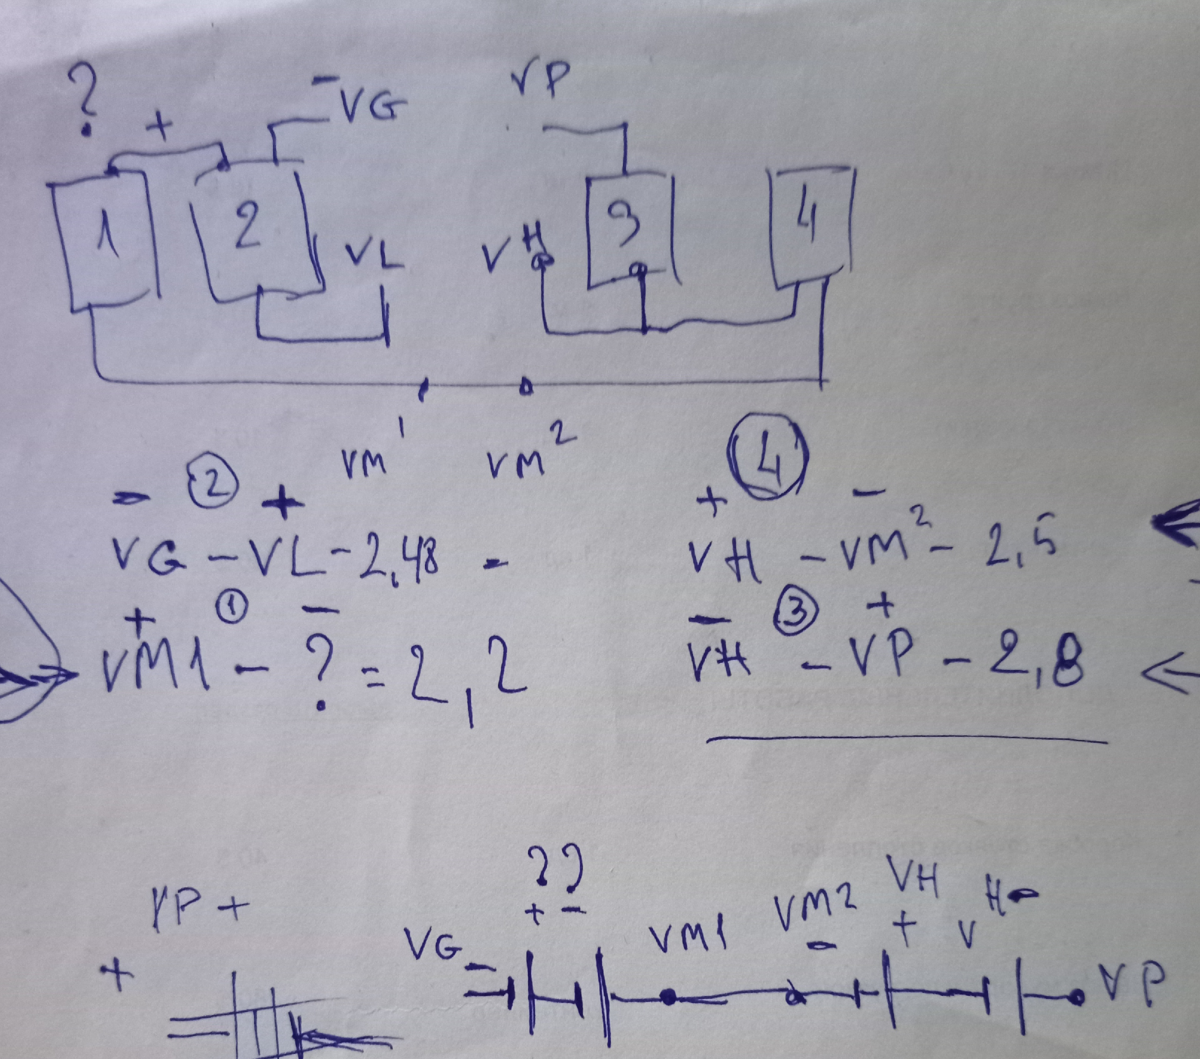 ?
+
- VG
VP
1
2
3
4
VL
VH
VM1
VM2
- ② +
④
+ -
VG - VL - 2,48 -
VH - VM2 - 2,5
+ ① -
- ③ +
VM1 - ? = 2,2
VH - VP - 2,8
??
+ -
VP +
+
VG -
VM1
VM2 -
VH +
VH -
VP